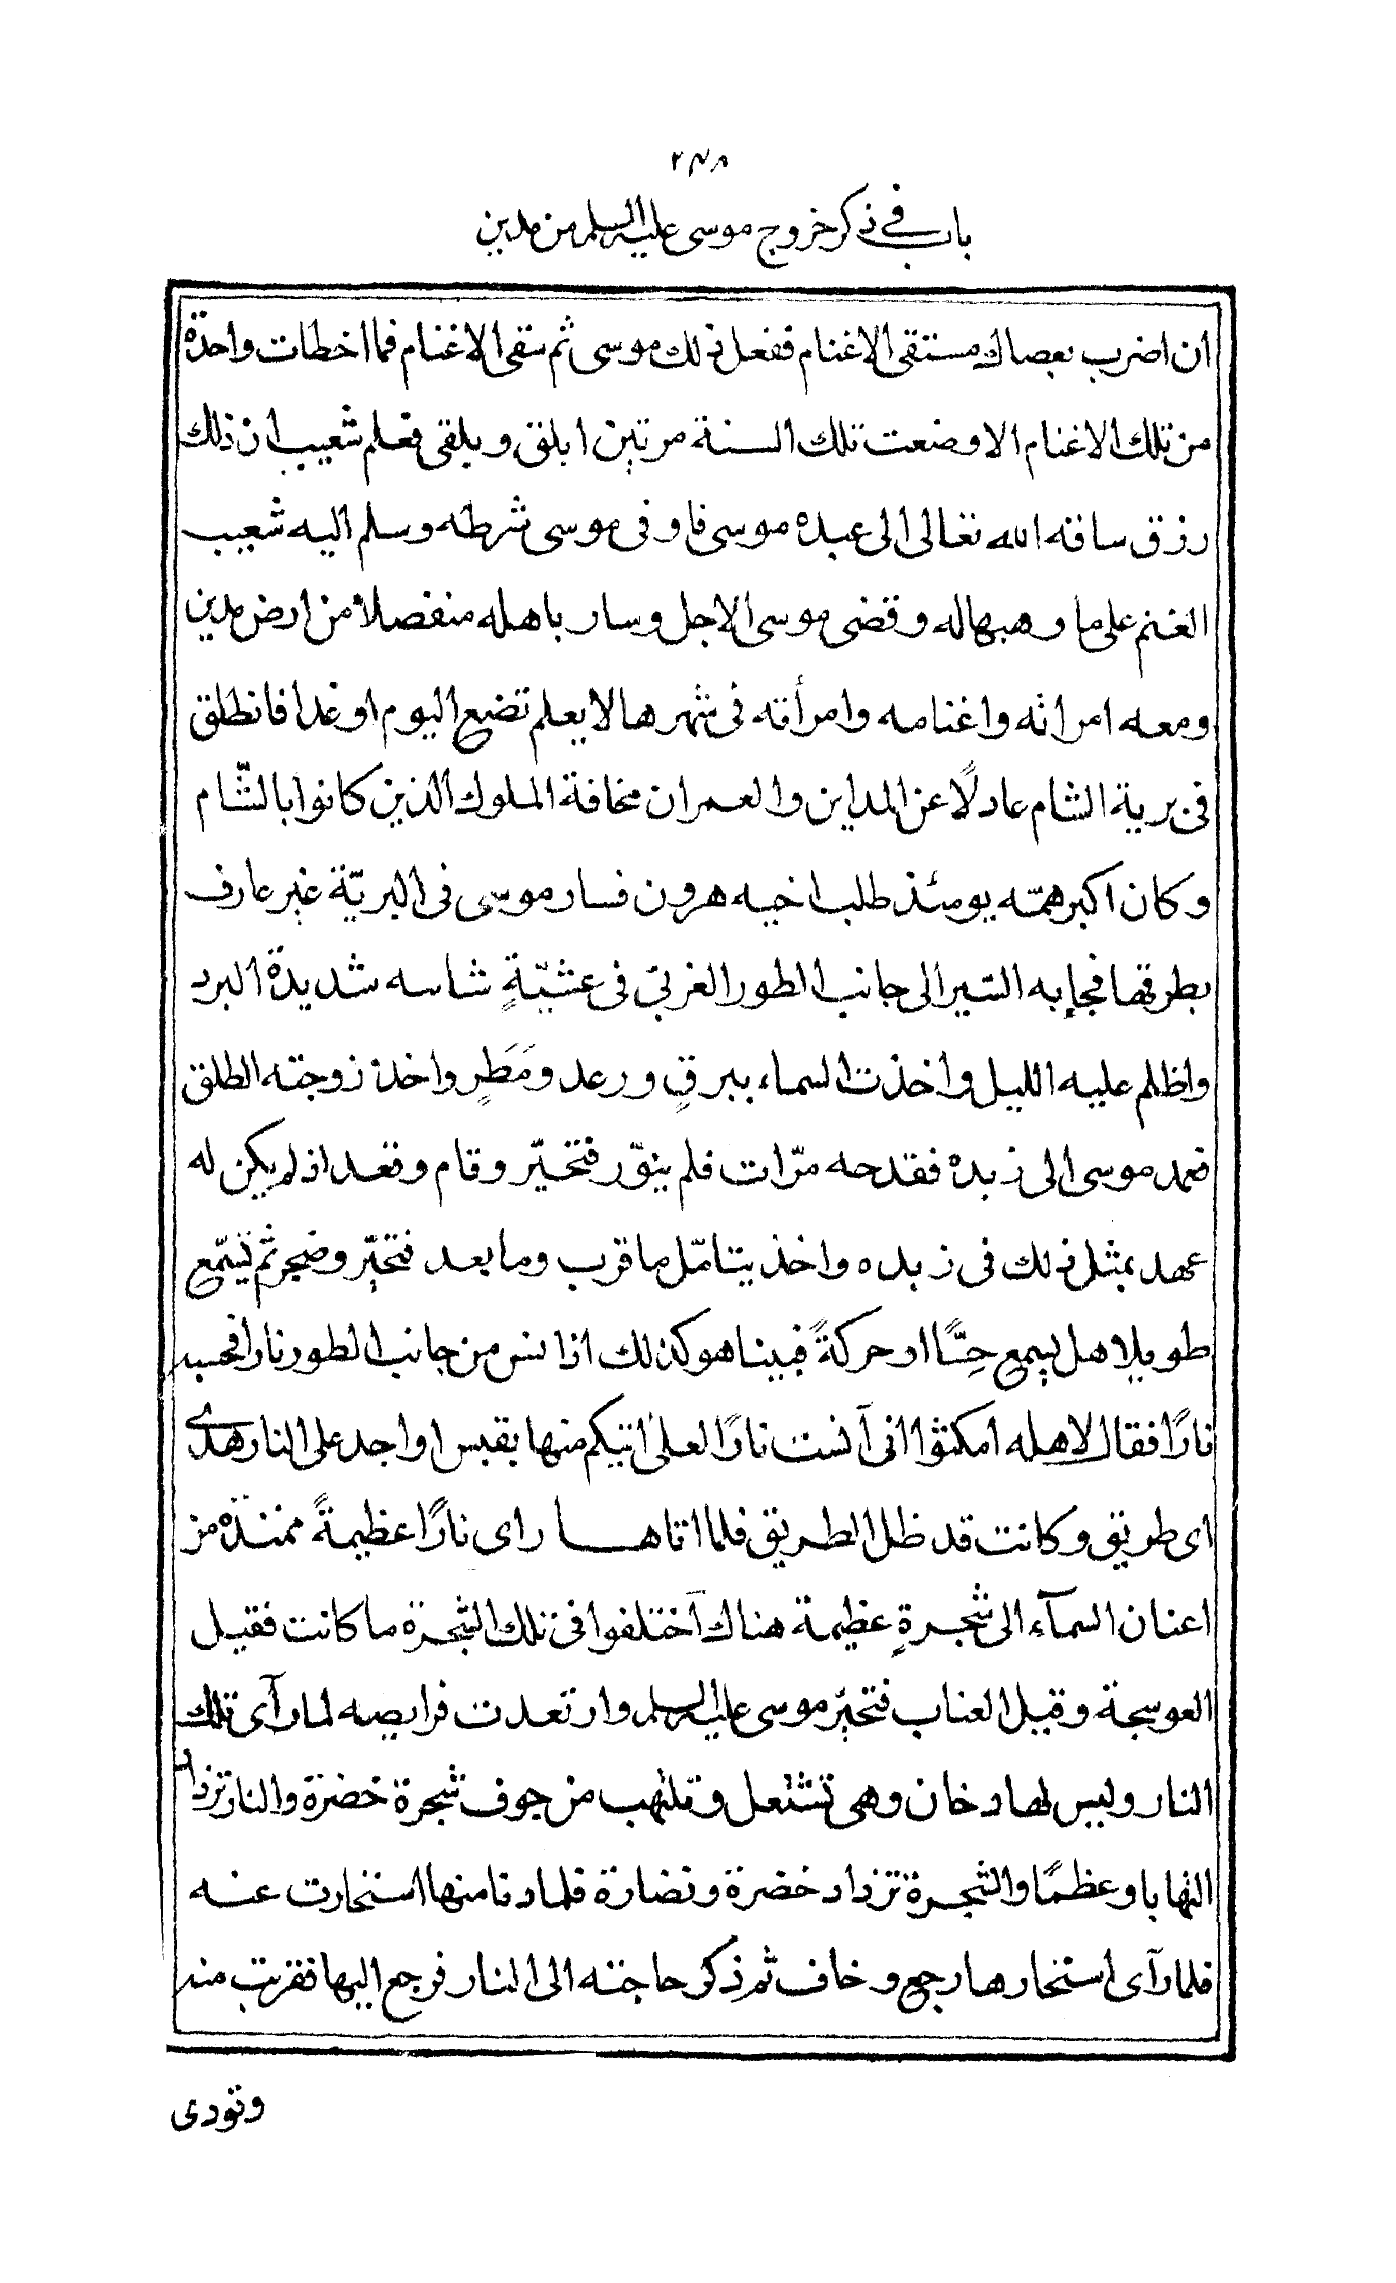 ٢٤٨
باب في ذكر خروج موسى عليه السلم من مدين
ان اضرب بعصاك مستقى الاغنام ففعل ذلك موسى ثم سقى الاغنام فما اخطات واحدة
من تلك الاغنام الا وضعت تلك السنة مرتين ابلق وبلقى فعلم شعيب ان ذلك
رزق ساقه الله تعالى الى عبده موسى فاوفى موسى شرطه وسلم اليه شعيب
الغنم على ما وهبها له وقضى موسى الاجل وسار باهله منفصلا من ارض مدين
ومعه امراته واغنامه وامرأته فى شهرها لا يعلم تضع اليوم او غدا فانطلق
فى برية الشام عادلًا عن المداين والعمران مخافة الملوك الذين كانوا بالشّام
وكان اكبر همّه يومئذ طلب اخيه هرون فسار موسى فى البريّة غير عارف
بطرقها فجاء به السّير الى جانب الطور الغربيّ فى عشيّةٍ شاسه شديدة البرد
واظلم عليه الليل واخذت السماء ببرقٍ ورعد ومَطَرٍ واخذ زوجته الطلق
فعمد موسى الى زبده فقدحه مرّات فلم ينوّر فتحيّر وقام وقعد اذ لم يكن له
عهد بمثل ذلك فى زبده واخذ يتامّل ما قرب وما بعد فتحيّر وضجر ثم تسمّع
طويلا هل يسمع حِسًّا او حركةً فبينا هو كذلك اذا نس من جانب الطور نارا فحسبه
نارًا فقال لاهله امكثوا انى آنست نارًا لعلى اتيكم منها بقبس او اجد على النار هدى
اى طريق وكانت قد ظل الطريق فلما اتاها راى نارًا عظيمةً ممتدة من
اعنان السمآء الى شجرةٍ عظيمة هناك اختلفوا فى تلك الشجرة ما كانت فقيل
العوسجة وقيل العناب فتحيّر موسى عليه السلم وارتعدت فرايصه لما رآى تلك
النار وليس لها دخان وهى تشتعل وتلتهب من جوف شجرة خضرة والنار تزداد
التهابا وعظمًا والشجرة تزداد خضرة ونضارة فلما دنا منها استخارت عنه
فلما رآى استخارها رجع وخاف ثم ذكر حاجته الى النار فرجع اليها فقربت منه
ونودى